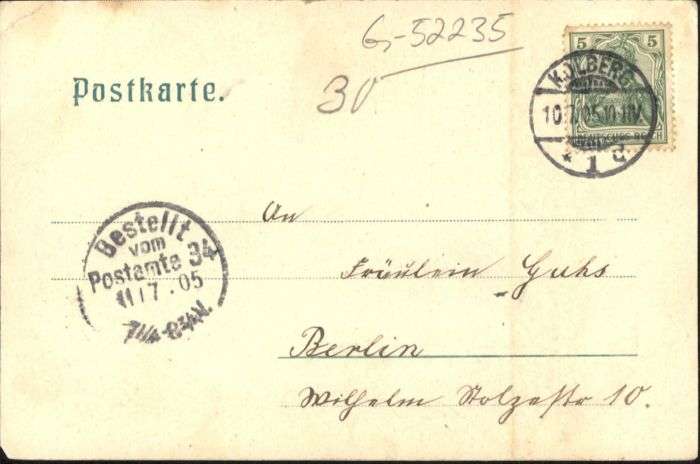 G-52235
30
5 5
Postkarte.
KOLBERG
10.7.05.10-11V.
* 1 d
DEUTSCHES REICH
An
Bestellt
vom
Postamte 34
11/7.05
7¼-8¾V.
Fräulein Guhs
Berlin
Wilhelm Stolzestr 10.